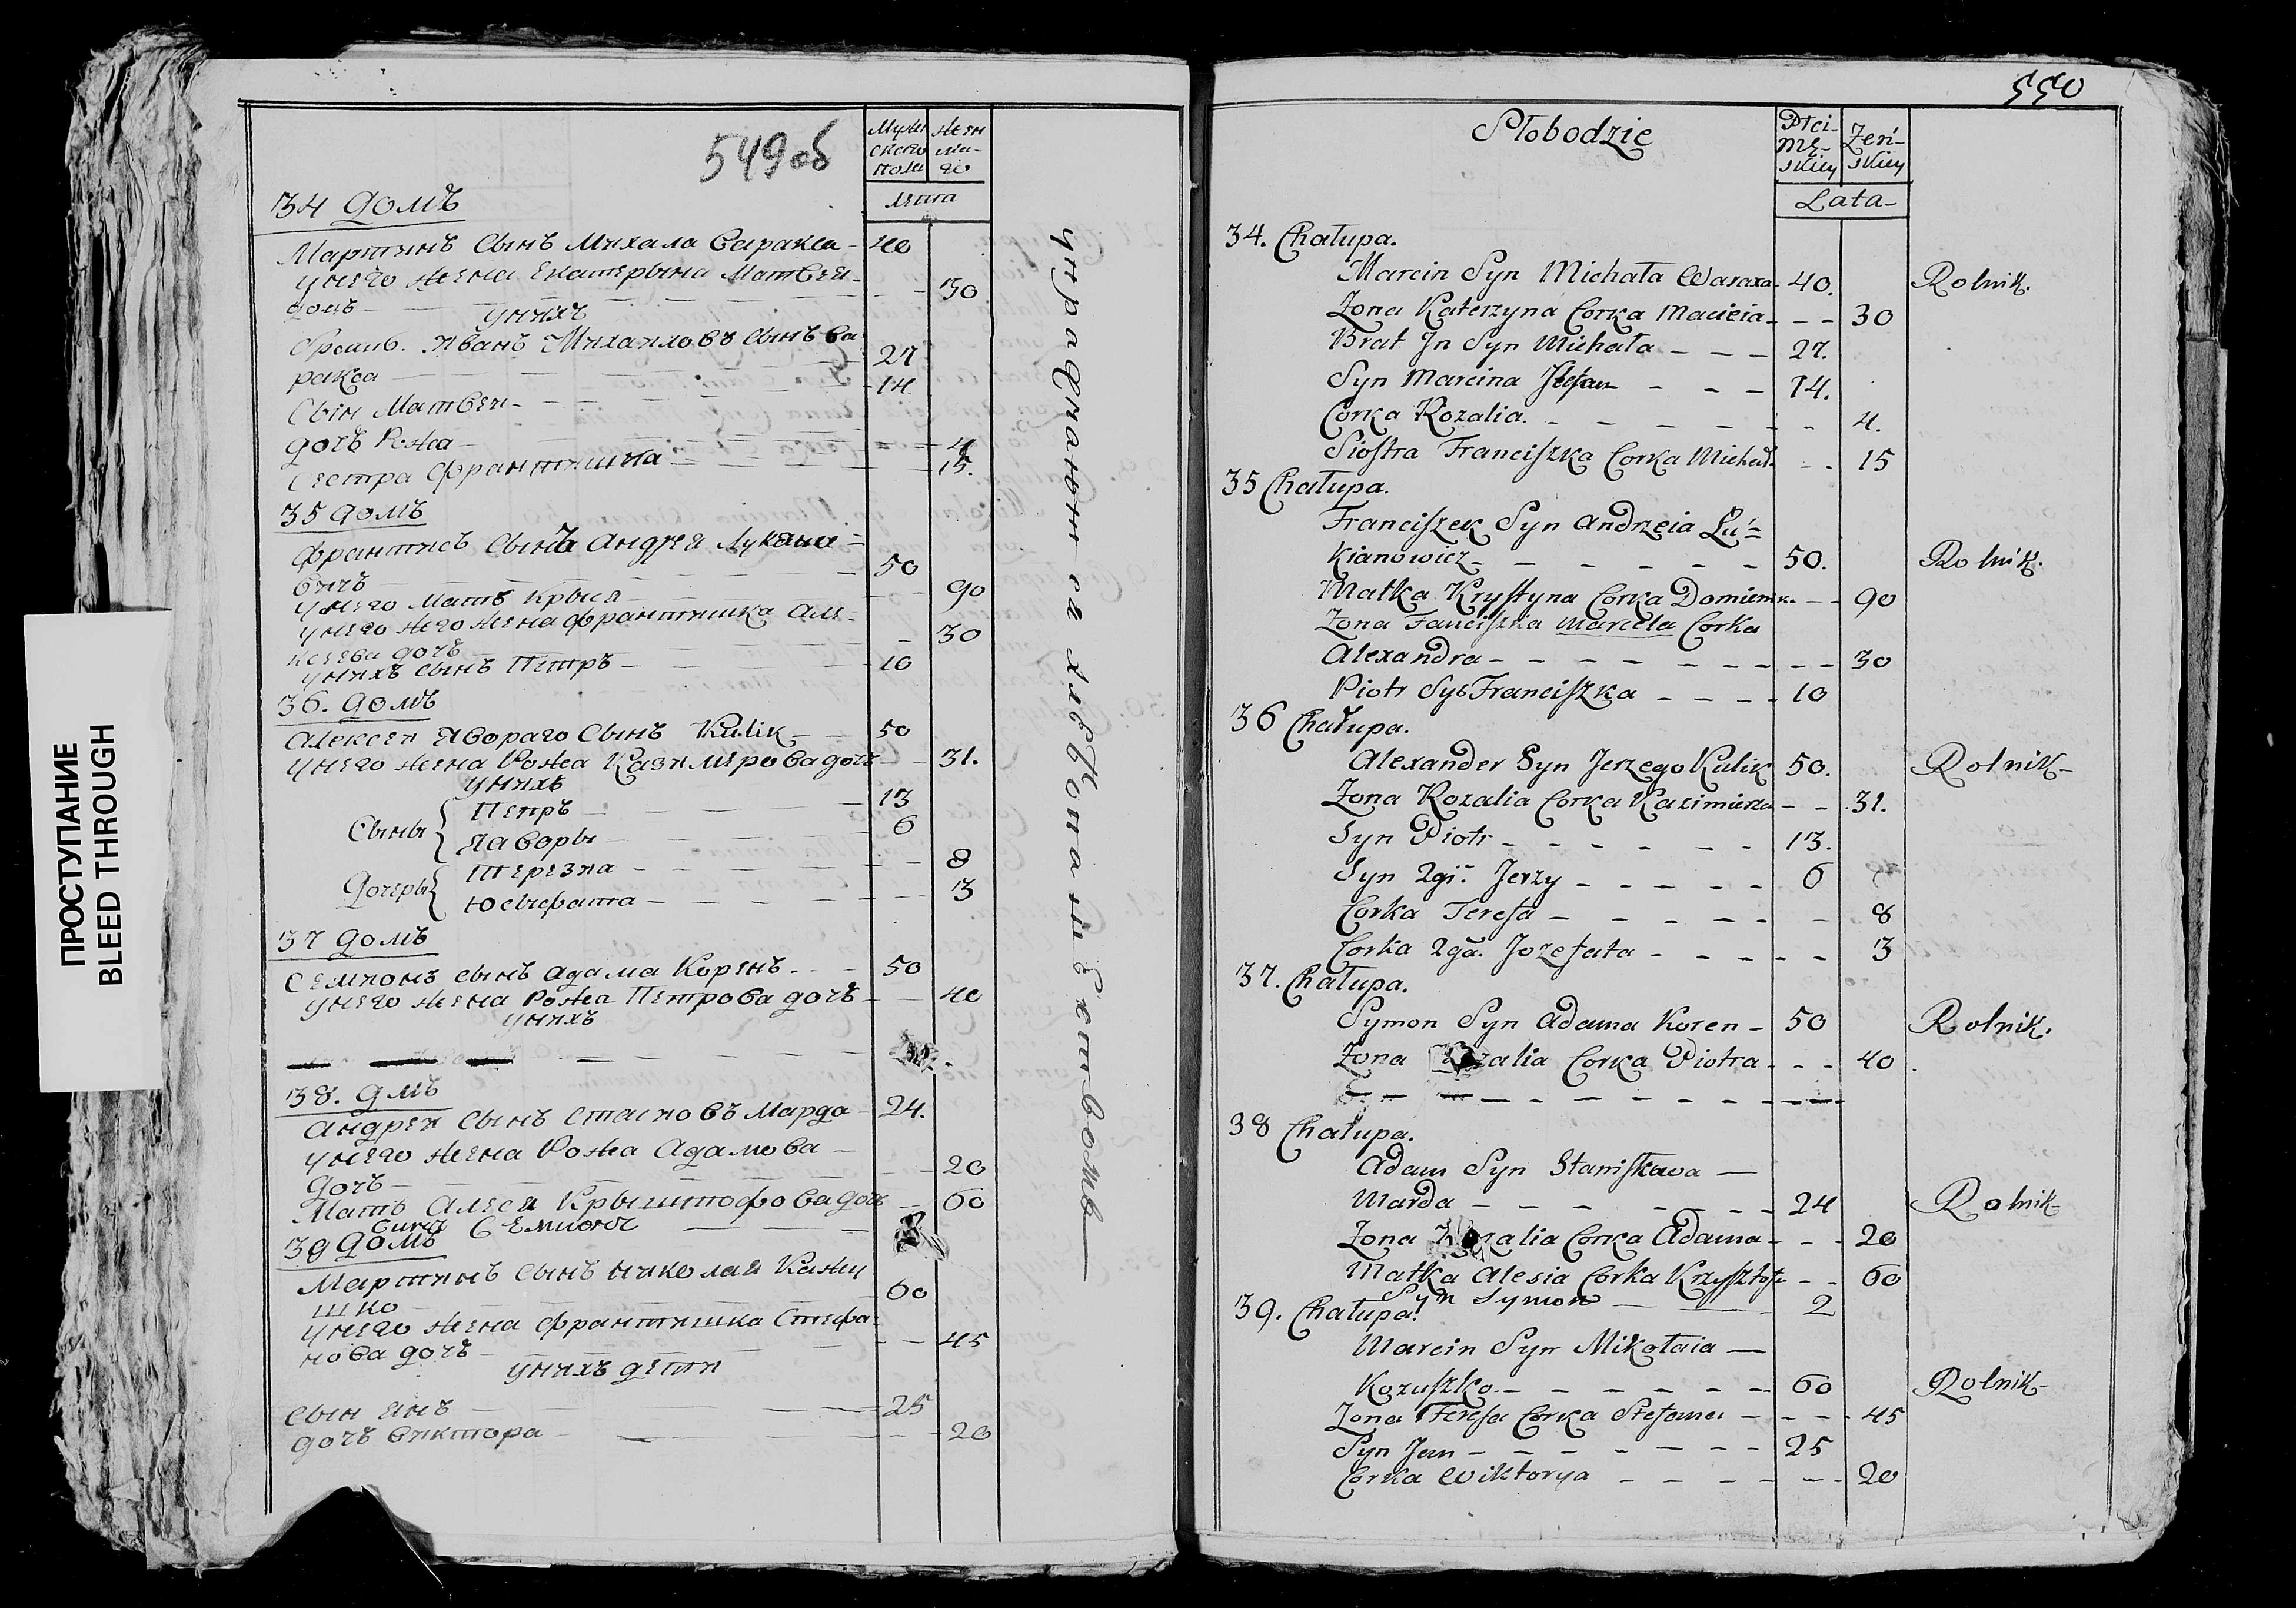 ПРОСТУПАНИЕ
BLEED THROUGH
549об
Муже
ского
пола
жен
ска-
го
лета
34 домъ
Мартинъ Сынъ Михала Варакса - 40
унего жена Екатерына Матвеи-
дочь - 30
унихъ
братъ. Иванъ Михаиловъ Сынъ Ва
ракса - 27
Сын Матвеи - 14
дочъ Рожа - 4
Сестра Франтишка - 15.
35 домъ
Франтисъ Сынъ Андрея Лукяно=
вичъ - 50
унего Мать Крыся - 90
унего жена Франтишка Але-
ксеева дочъ - 30
унихъ Сынъ Петръ - 10
36. домъ
Алексеи Явораго Сынъ Kulik - 50
унего жена Рожа Казимерова дочъ - 31.
унихъ
Сыны { Петръ - 13
Яаворы - 6
Дочеры { Терезиа - 8
Юсефата - 3
37 домъ
Семионъ сынъ Адама Коренъ - 50
унего жена Рожа Петрова дочъ - 40
унихъ
38. дмъ
Андреи Сынъ Стасиовъ Марда - 24.
унего жена Рожа Адамова -
дочъ - 20
Мать Алеся Крыштофова дочъ - 60
Сынъ Семионъ
39 домъ
Мартинъ Сынъ николая Кажу
шко - 60
унего жена Франтишка Стефа-
нова дочъ - 45
унихъ дети
сын янъ - 25
дочъ Виктора - 20
упражняютсе хлебопашэхтвомъ
550
Słobodzie
Płci
Mę-
skiey
Żeń-
skiey
Lata
34. Chałupa.
Marcin Syn Michała Waraxa - 40. Rolnik.
Zona Katerzyna Corka Macieia - 30
Brat Jn Syn Michała - 27.
Syn Marcina Stefan - 14.
Corka Rozalia. - 4.
Siostra Franciszka Corka Michał. - 15
35 Chałupa.
Franciszek Syn Andrzeia Lu=
kianowicz - 50. Rolnik.
Matka Krystyna Corka Dominik. - 90
Zona Fanciszka Marcela Corka
Alexandra - 30
Piotr Sys Franciszka - 10
36 Chałupa.
Alexander Syn Jerzego Kulik 50. Rolnik
Zona Rozalia Corka Kazimierza - 31.
Syn Piotr - 13.
Syn 2gi. Jerzy - 6
Corka Teresa - 8
Corka 2ga. Jozefata - 3
37. Chałupa.
Symon Syn Adama Koren - 50 Rolnik.
Zona Rozalia Corka Piotra - 40
38 Chałupa.
Adam Syn Stanisława -
Marda - 24 Rolnik
Zona Rozalia Corka Adama - 20
Matka Alesia Corka Krzysztofa - 60
Syn Symon - 2
39. Chałupa.
Marcin Syn Mikołaia -
Kozuszko - 60 Rolnik
Zona Teresa Corka Stefana - 45
Syn Jan - 25
Corka Wiktorya - 20